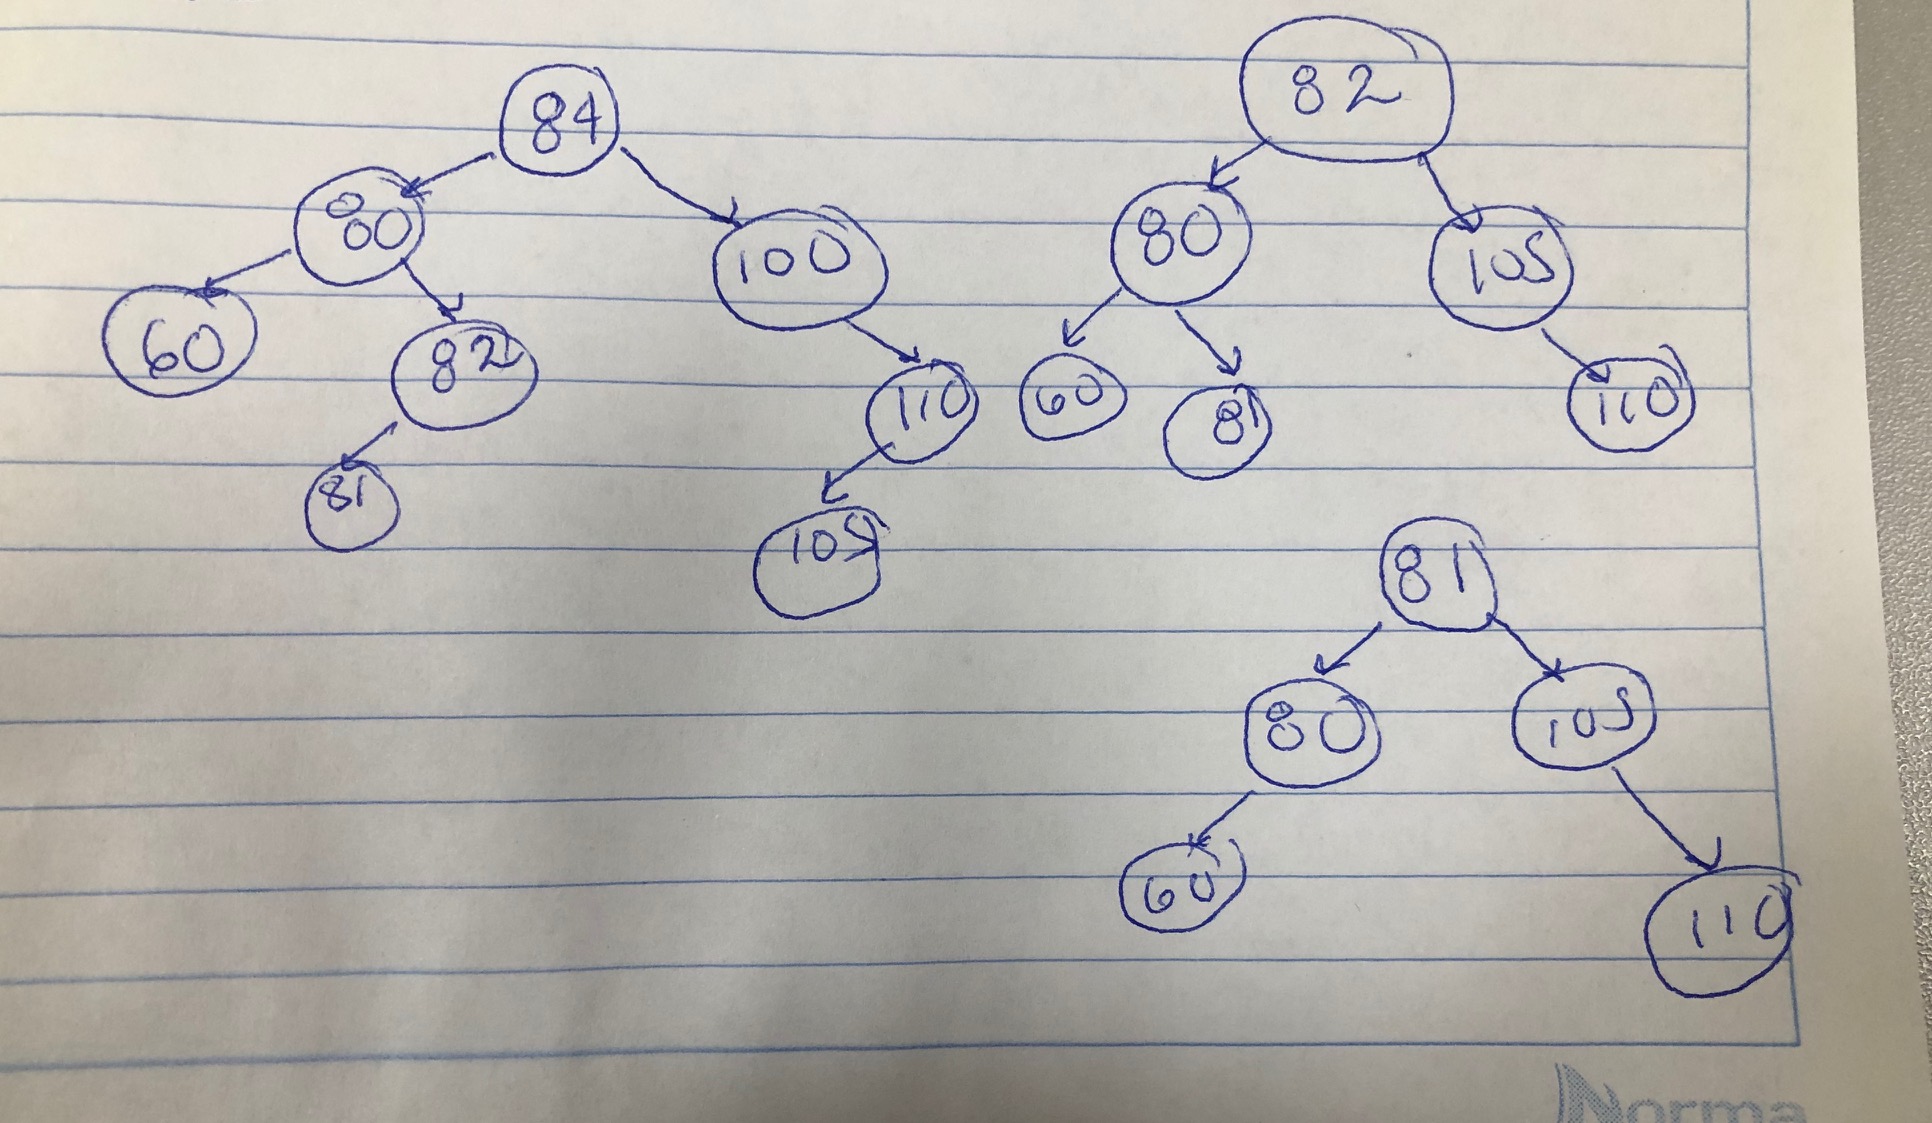 84
80 100
60 82 110
81 105
82
80 105
60 81 110
81
80 105
60 110
Norma